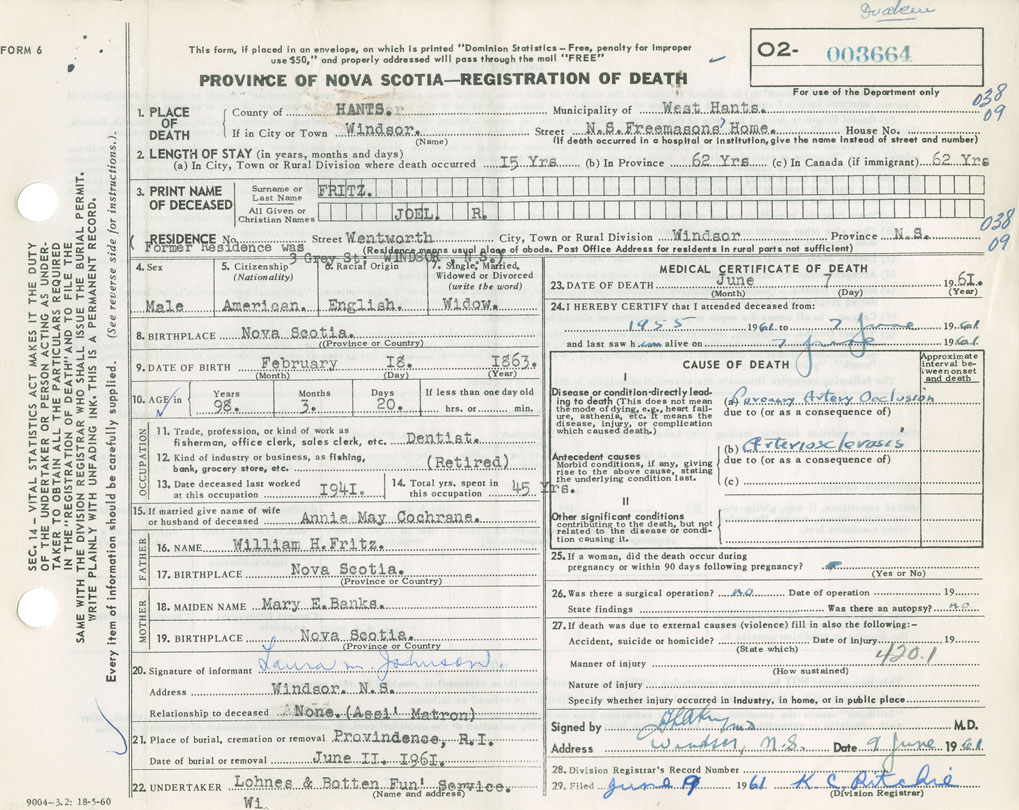 Deakin
FORM 6
This form, if placed in an envelope, on which is printed "Dominion Statistics – Free, penalty for improper
use $50," and properly addressed will pass through the mail "FREE"
PROVINCE OF NOVA SCOTIA—REGISTRATION OF DEATH
O2- 003664
For use of the Department only
038
09
1. PLACE OF DEATH
County of HANTS. Municipality of West Hants.
If in City or Town Windsor. Street N.S.Freemasons' Home. House No.
(Name) (If death occurred in a hospital or institution, give the name instead of street and number)
2. LENGTH OF STAY (in years, months and days)
(a) In City, Town or Rural Division where death occurred I5 Yrs (b) In Province 62 Yrs (c) In Canada (if immigrant) 62 Yrs
3. PRINT NAME OF DECEASED
Surname or Last Name FRITZ.
All Given or Christian Names JOEL. R.
038
09
RESIDENCE No. Street Wentworth City, Town or Rural Division Windsor Province N.S.
( Former Residence was (Residence means usual place of abode. Post Office Address for residents in rural parts not sufficient)
3 Grey St: WINDSOR . N.S.)
4. Sex 5. Citizenship (Nationality) 6. Racial Origin 7. Single, Married, Widowed or Divorced (write the word)
Male American. English. Widow.
8. BIRTHPLACE Nova Scotia.
(Province or Country)
9. DATE OF BIRTH February I8. I863.
(Month) (Day) (Year)
10. AGE in Years Months Days If less than one day old
98. 3. 20. hrs. or min.
OCCUPATION
11. Trade, profession, or kind of work as
fisherman, office clerk, sales clerk, etc. Dentist.
12. Kind of industry or business, as fishing,
bank, grocery store, etc. (Retired)
13. Date deceased last worked at this occupation I94I. 14. Total yrs. spent in this occupation 45 Yrs.
15. If married give name of wife
or husband of deceased Annie May Cochrane.
FATHER
16. NAME William H.Fritz.
17. BIRTHPLACE Nova Scotia.
(Province or Country)
MOTHER
18. MAIDEN NAME Mary E.Banks.
19. BIRTHPLACE Nova Scotia.
(Province or Country)
20. Signature of informant Laura M. Johnson.
Address Windsor. N.S.
Relationship to deceased None.(Assi' Matron)
21. Place of burial, cremation or removal Providence, R.I.
Date of burial or removal June II. I96I.
22. UNDERTAKER Lohnes & Botten Fun' Service.
(Name and address)
Wi
MEDICAL CERTIFICATE OF DEATH
23. DATE OF DEATH June 7 1961.
(Month) (Day) (Year)
24. I HEREBY CERTIFY that I attended deceased from:
1955 1961 to 7 June 1961
and last saw him alive on 7 June 1961
CAUSE OF DEATH
Approximate interval between onset and death
I
Disease or condition directly leading to death (This does not mean the mode of dying, e.g., heart failure, asthenia, etc. It means the disease, injury, or complication which caused death.)
(a) Coronary Artery Occlusion
due to (or as a consequence of)
Antecedent causes
Morbid conditions, if any, giving rise to the above cause, stating the underlying condition last.
(b) Arteriosclerosis
due to (or as a consequence of)
(c)
II
Other significant conditions
contributing to the death, but not related to the disease or condition causing it.
25. If a woman, did the death occur during
pregnancy or within 90 days following pregnancy?
(Yes or No)
26. Was there a surgical operation? no Date of operation 19
State findings Was there an autopsy? no
27. If death was due to external causes (violence) fill in also the following:–
Accident, suicide or homicide? Date of injury 19
(State which)
420.1
Manner of injury
(How sustained)
Nature of injury
Specify whether injury occurred in industry, in home, or in public place
Signed by M.D.
Address Windsor, N.S. Date 9 June 1961
28. Division Registrar's Record Number
29. Filed June 9 1961 K. C. Ritchie
(Division Registrar)
SEC. 14 – VITAL STATISTICS ACT MAKES IT THE DUTY
OF THE UNDERTAKER OR PERSON ACTING AS UNDER-
TAKER TO OBTAIN ALL THE PARTICULARS REQUIRED
IN THE "REGISTRATION OF DEATH" AND TO FILE THE
SAME WITH THE DIVISION REGISTRAR WHO SHALL ISSUE THE BURIAL PERMIT.
WRITE PLAINLY WITH UNFADING INK. THIS IS A PERMANENT RECORD.
Every item of information should be carefully supplied. (See reverse side for instructions.)
9004–3.2: 18-5-60